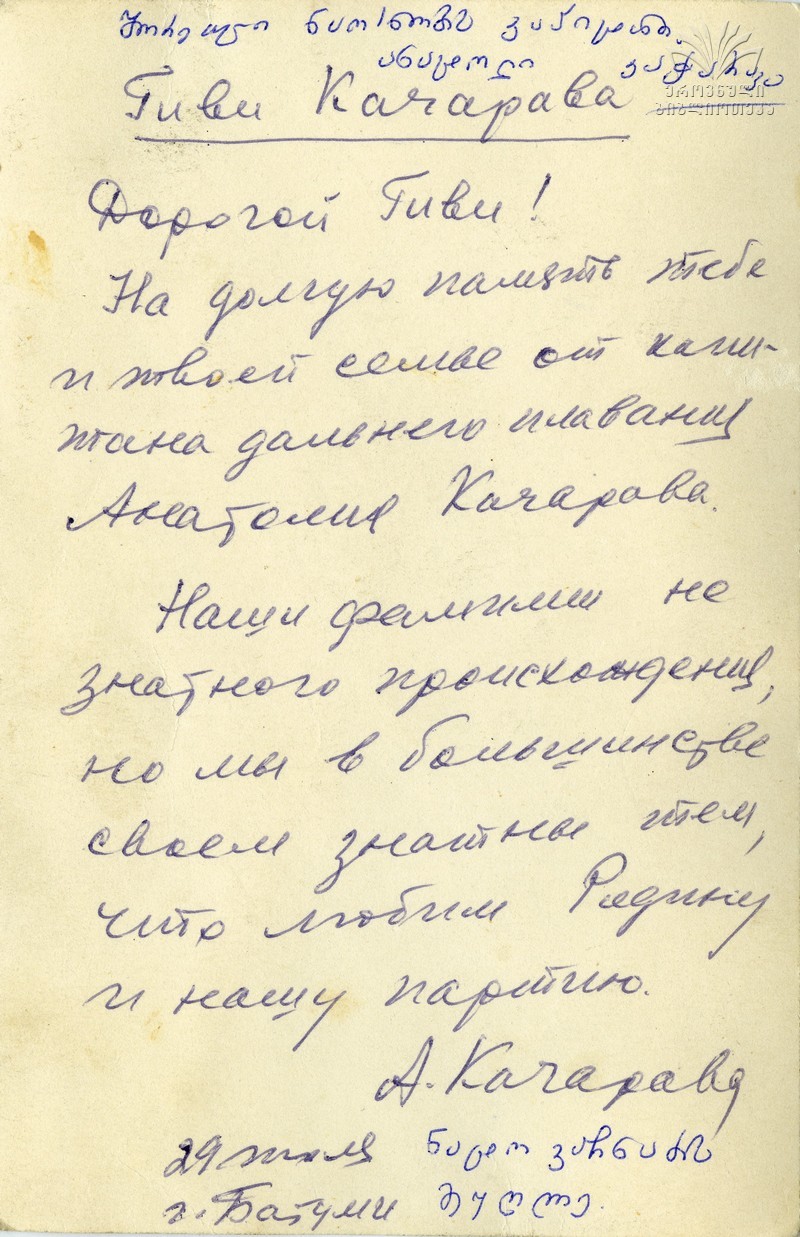 შორეული ნაოსნობის კაპიტანი.
ანატოლი კაჭარავა
ეროვნული
ბიბლიოთეკა
Гиви Качарава
Дорогой Гиви!
На долгую память тебе
и твоей семье от капи-
тана дальнего плавания
Анатолия Качарава.
Наши фамилии не
знатного происхождения,
но мы в большинстве
своем знатны тем,
что любим Родину
и нашу партию.
А. Качарава
29
г. Батуми
მეუღლე.